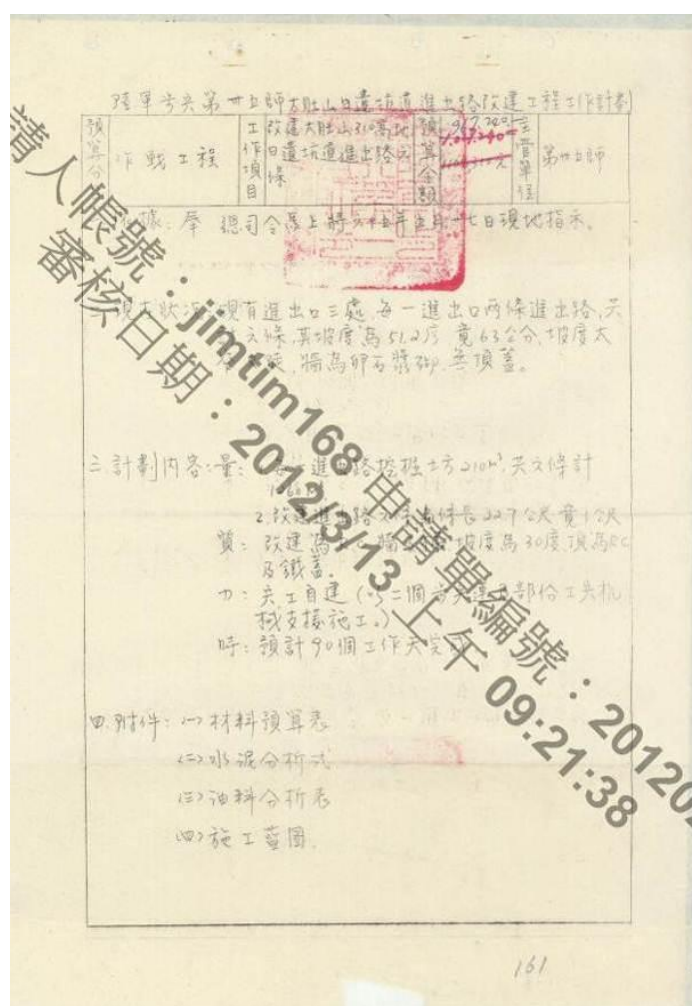 陸軍步兵第卅五師大肚山日遺坑道進出路改建工程工作計劃
預算分 作戰工程 工作項目 改建大肚山310高地日遺坑道進出路元條 預算金額 主管單位 第卅五師
據：奉 總司令 上將六十五年五月十七日現地指示。
現在狀況：現有進出口三處，每一進出口兩條進出路，共
元條，其坡度為51.2度 寬63公分，坡度太
陡，牆為卵石漿砌，無頂蓋。
三.計劃內容：量： 進出路挖掘土方210m³，共 條計
2.改建進出路 條長227公尺寬1公尺
質：改建為 牆 坡度為30度頂為RC
及鐵蓋。
力：兵工自建（以二個步兵連及部份工兵机
械支援施工。）
時：預計90個工作天完成
四.附件：(一)材料預算表
(二)水泥分析式
(三)油料分析表
(四)施工藍圖.
161
請人帳號：jimtim168 申請單編號：201202
審核日期：2012/3/13 上午 09:21:38